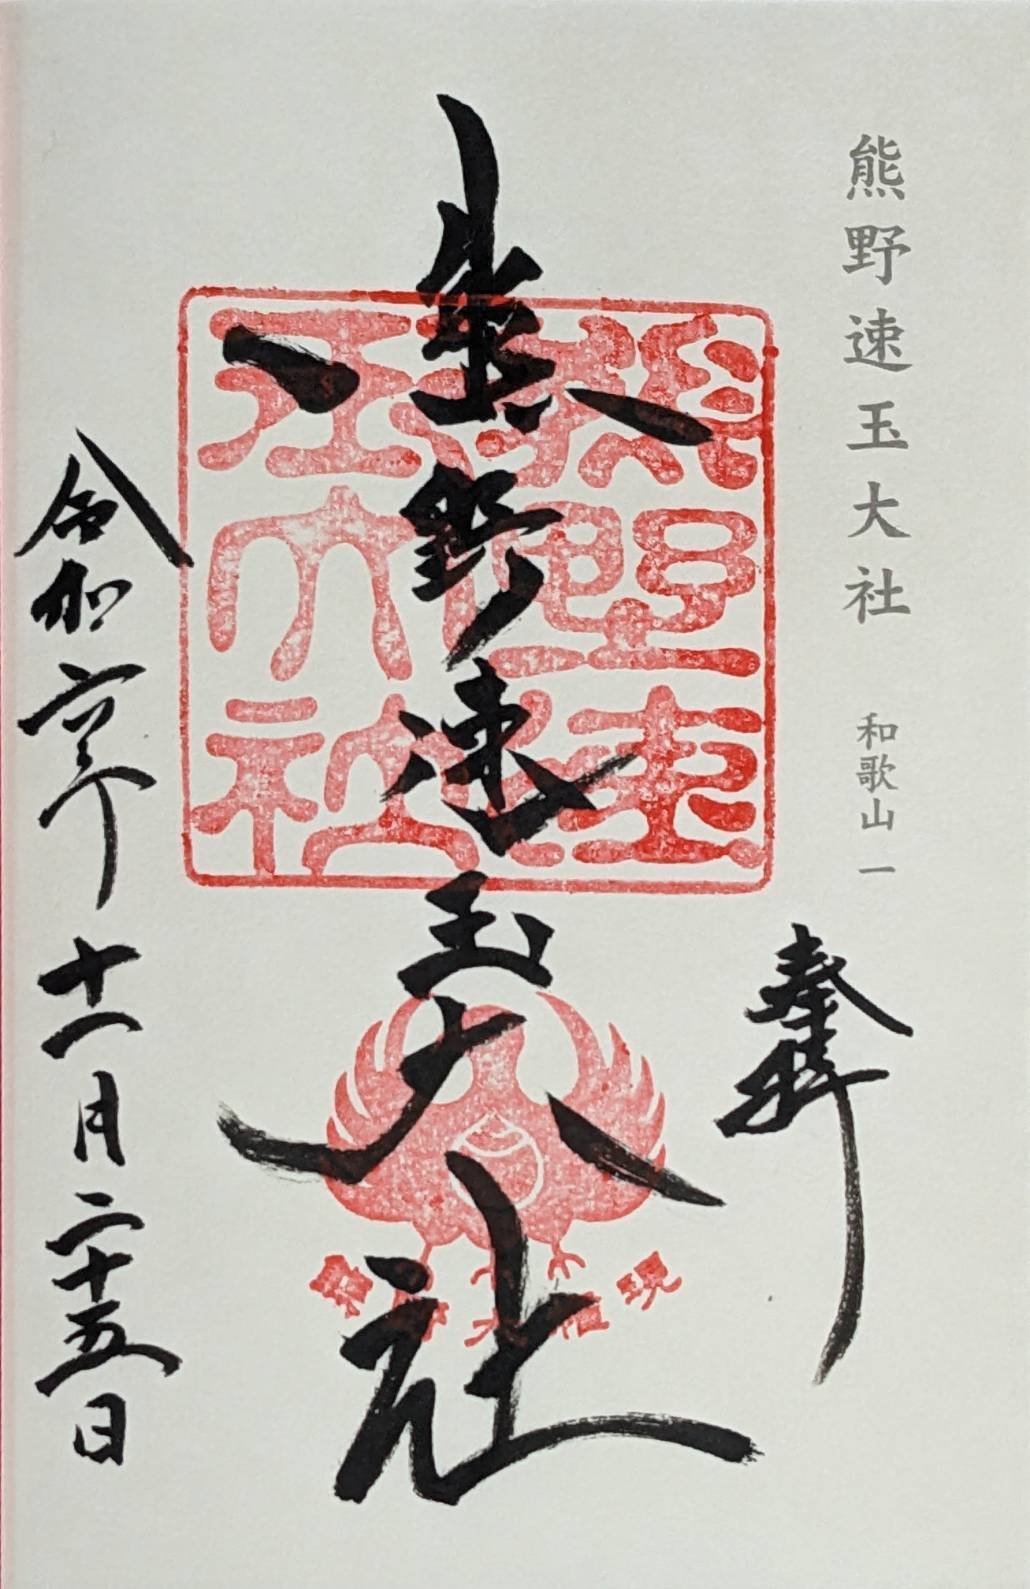 熊野速玉大社 和歌山一
奉拝
熊野速玉大社
熊野速玉大社
熊野大権現
令和六年十一月二十五日